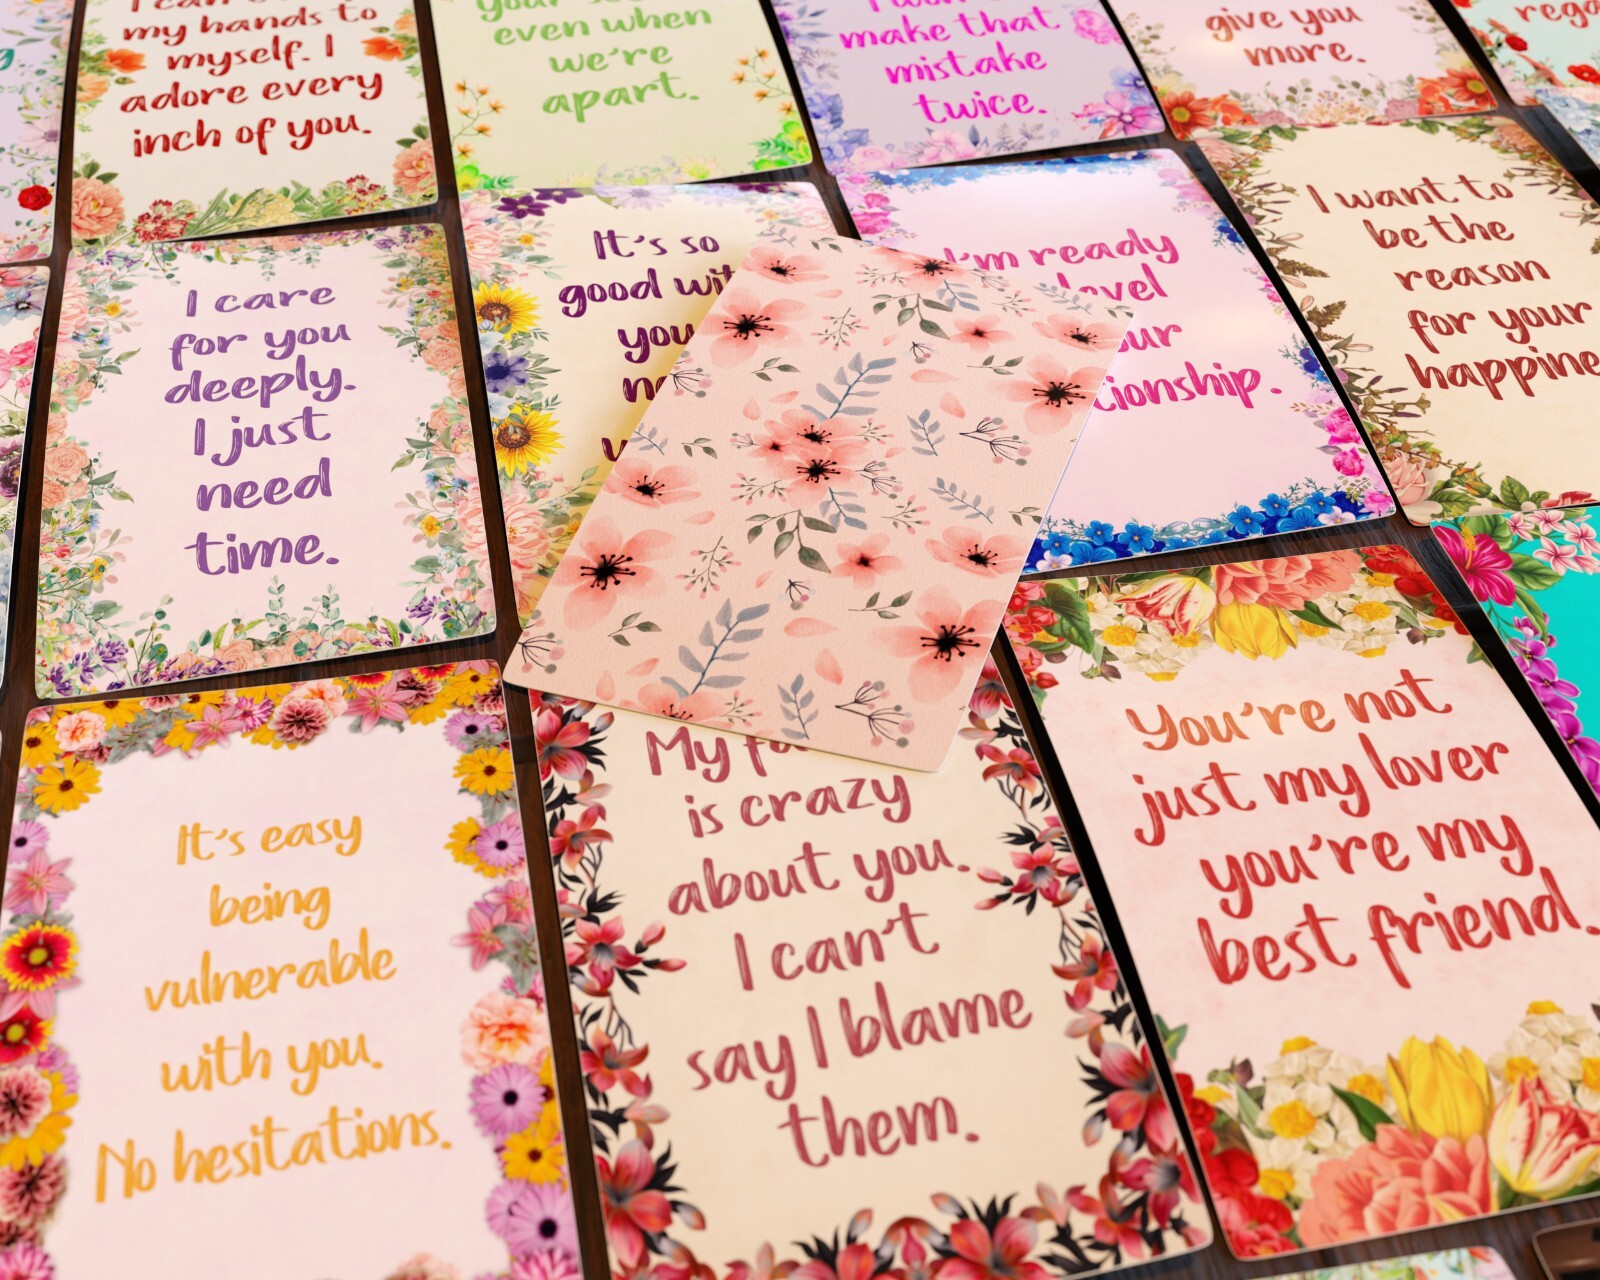 my hands to
myself. I
adore every
inch of you.
even when
we're
apart.
make that
mistake
twice.
give you
more.
I care
for you
deeply.
I just
need
time.
It's so
good
you
I'm ready
level
relationship.
I want to
be the
reason
for your
It's easy
being
vulnerable
with you.
No hesitations.
My
is crazy
about you.
I can't
say I blame
them.
You're not
just my lover
you're my
best friend.